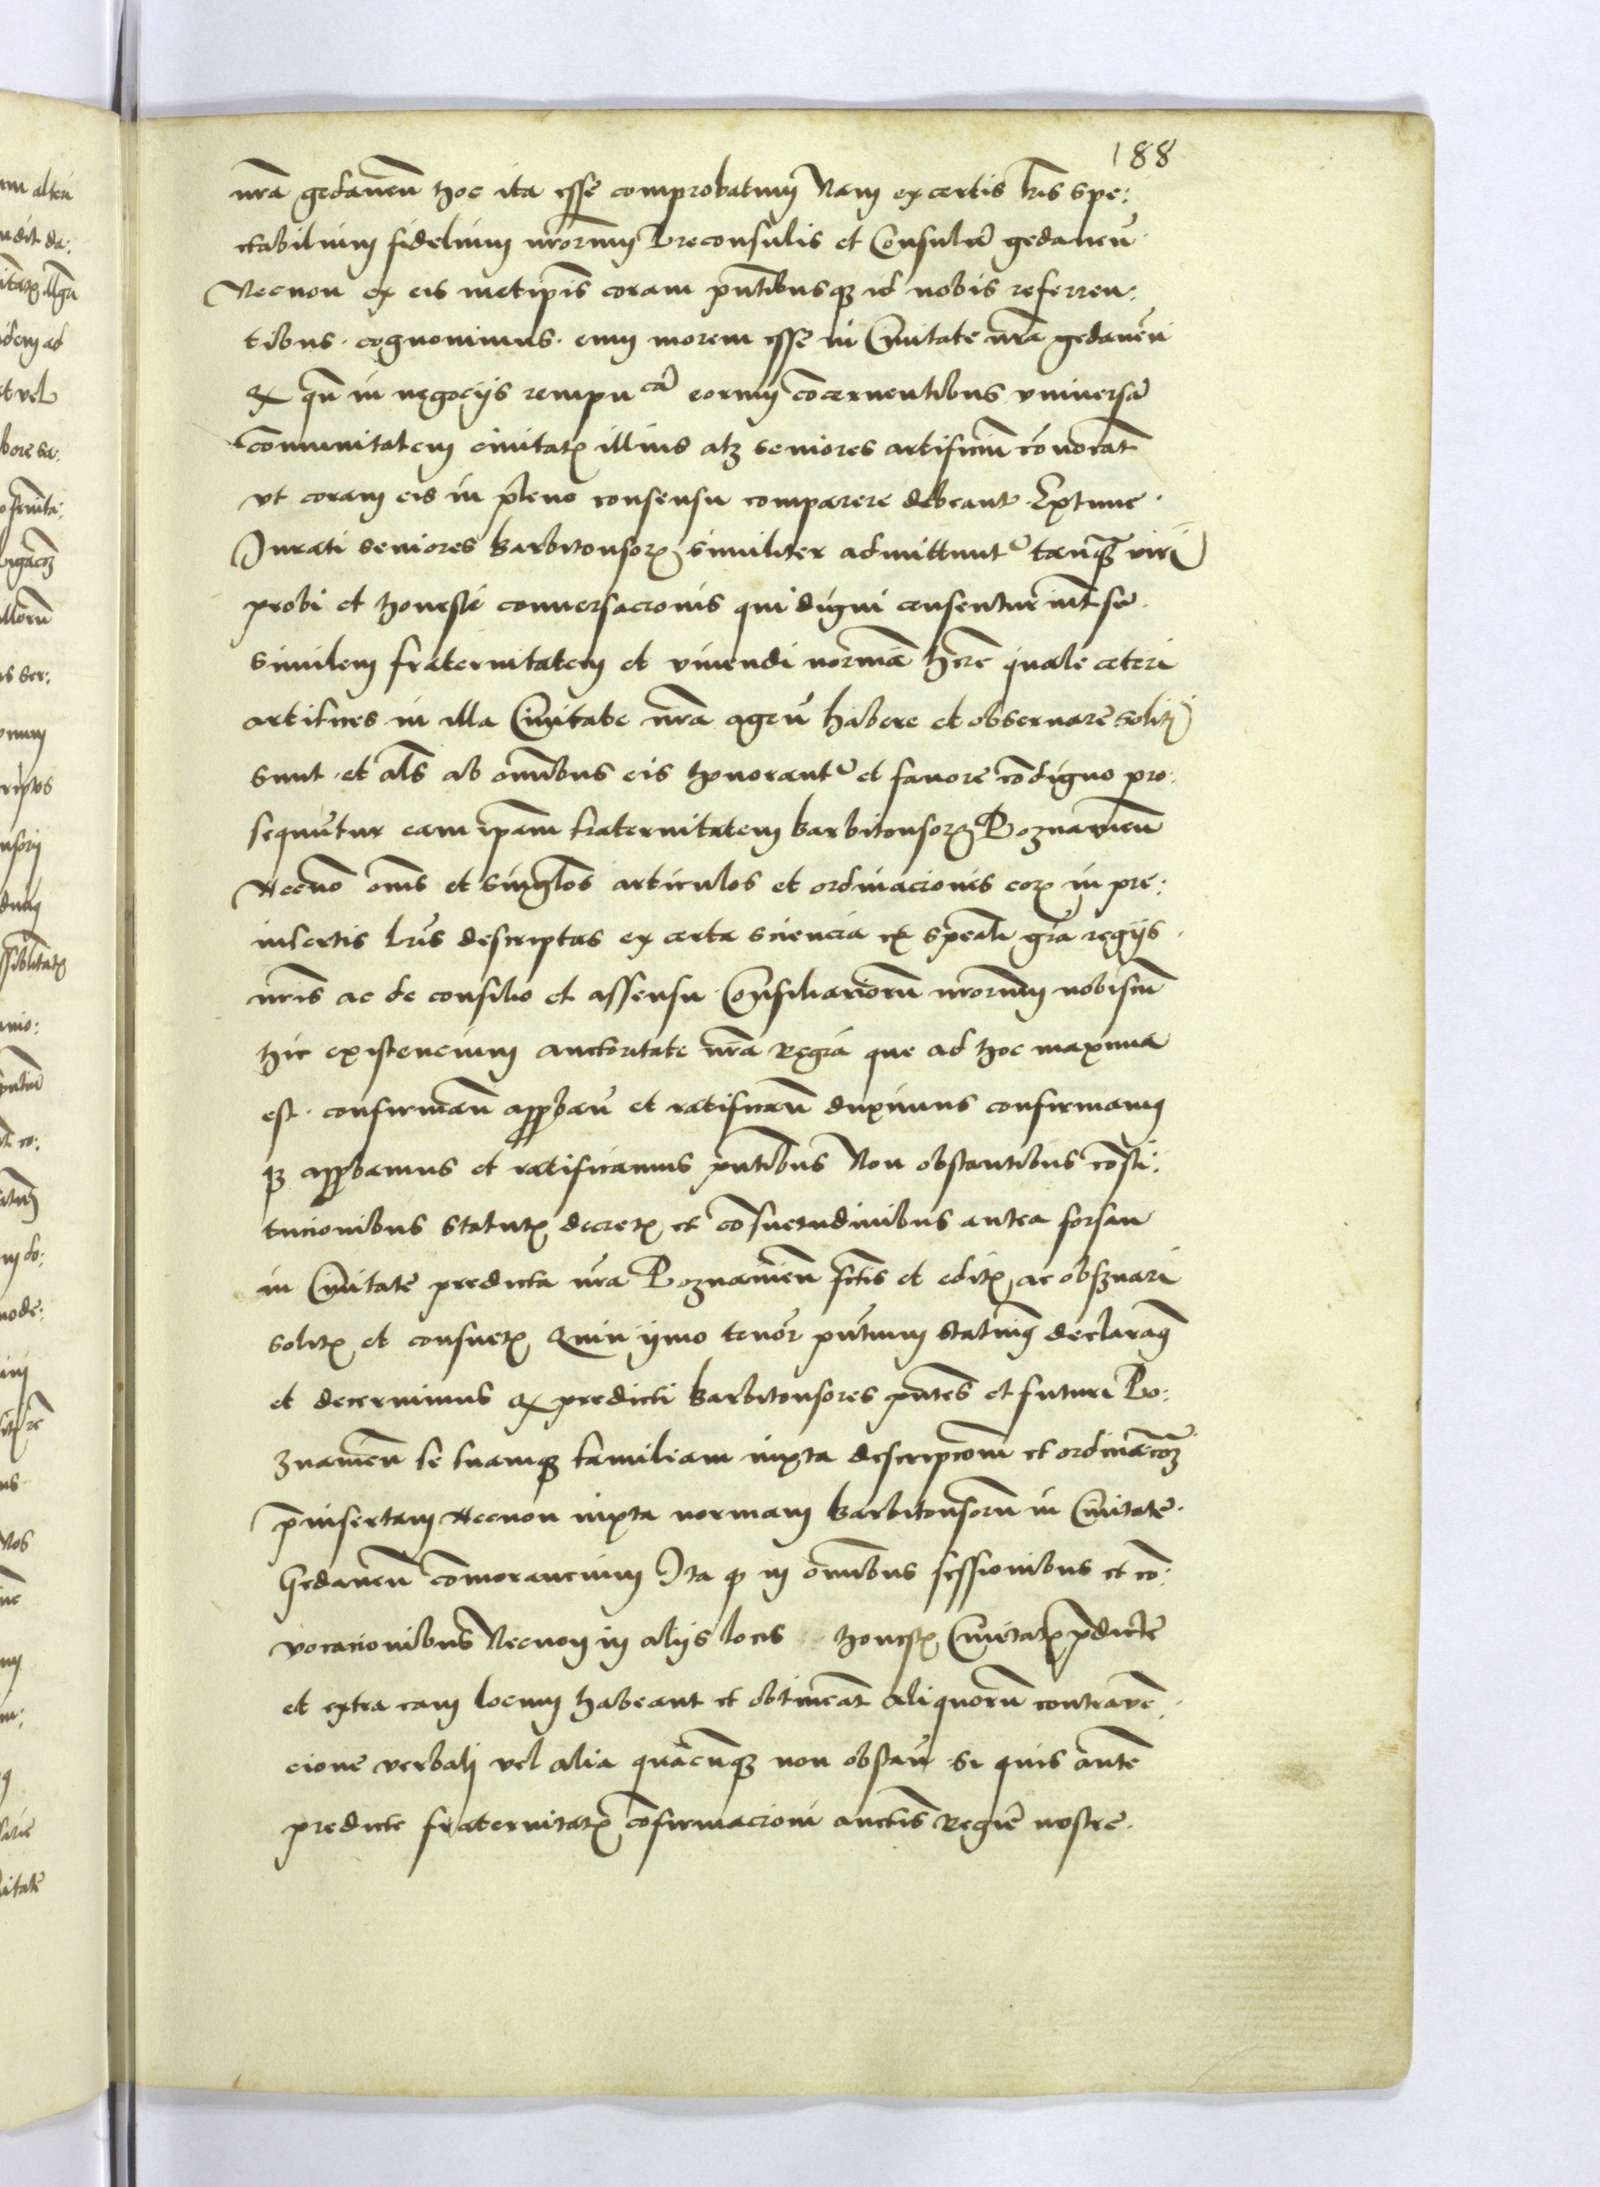 188
nrã gedaneñ hoc ita esse comprobatum Nam ex certis lris spe:
ctabilium fidelium nrorum Preconsulis et Consulũ gedaneñ
Necnon ex eis metipis coram pntibusqz id nobis referren:
tibus cognovimus eum morem esse in Civitate nrã gedaneñ
qn in negocijs rempucã eorum concernentibus universã
comunitatem civitatꝭ illius atqz seniores artificiũ convocãt
ut coram eis in pleno consensu comparere debeant Extunc
Jurati seniores barbitonsorꝝ similiter admittuntʳ tanqꝫ viri
probi et honeste conversacionis qui digni censentur int se
similem fraternitatem et vivendi normã hre quale ceteri
artifices in illa Civitate nrã ageñ habere et observare soliti
sunt et als ab omibus eis honorantʳ et favore condigno pro:
sequũtur eam ipam fraternitatem barbitonsorꝝ Poznanieñ
Necno oms et singlos articulos et ordinaciones eorꝝ in pre:
insertis lris descriptas ex certa sciencia et speali gra regijs
nris ac de consilio et assensu Consiliariorũ nrorum nobiscũ
hic existencium auctoritate nrã Regiã que ad hoc maxima
est confirmañ approbañ et ratificañ duximus confirmamꝰ
qz approbamus et ratificamus pntibus Non obstantibus consti:
tucionibus statutꝭ decretꝭ et consuetudinibus antea forsan
in Civitate predicta nra Poznanieñ fctis et editꝭ ac observari
solitꝭ et consuetꝭ Quin ymo tenor pntium statuimꝰ declaramꝰ
et decernimus qꝫ predicti barbitonsores pntes et futuri Po:
znanieñ se suamqz familiam iuxta descripcõm et ordinacõꝫ
p̃insertam Necnon iuxta normam barbitonsorũ in Civitate
Gedaneñ comorancium Ita qꝫ in omibus sessionibus et con:
vocacionibus Necnon in alijs locis honestꝭ Civitatꝭ p̃dicte
et extra eam locum habeant et obtineãt aliquorũ contraven:
cione verbali vel alia quacũqz non obstañ Si quis autẽ
predicte fraternitatꝭ confirmacioni auctis Regiẽ nostre